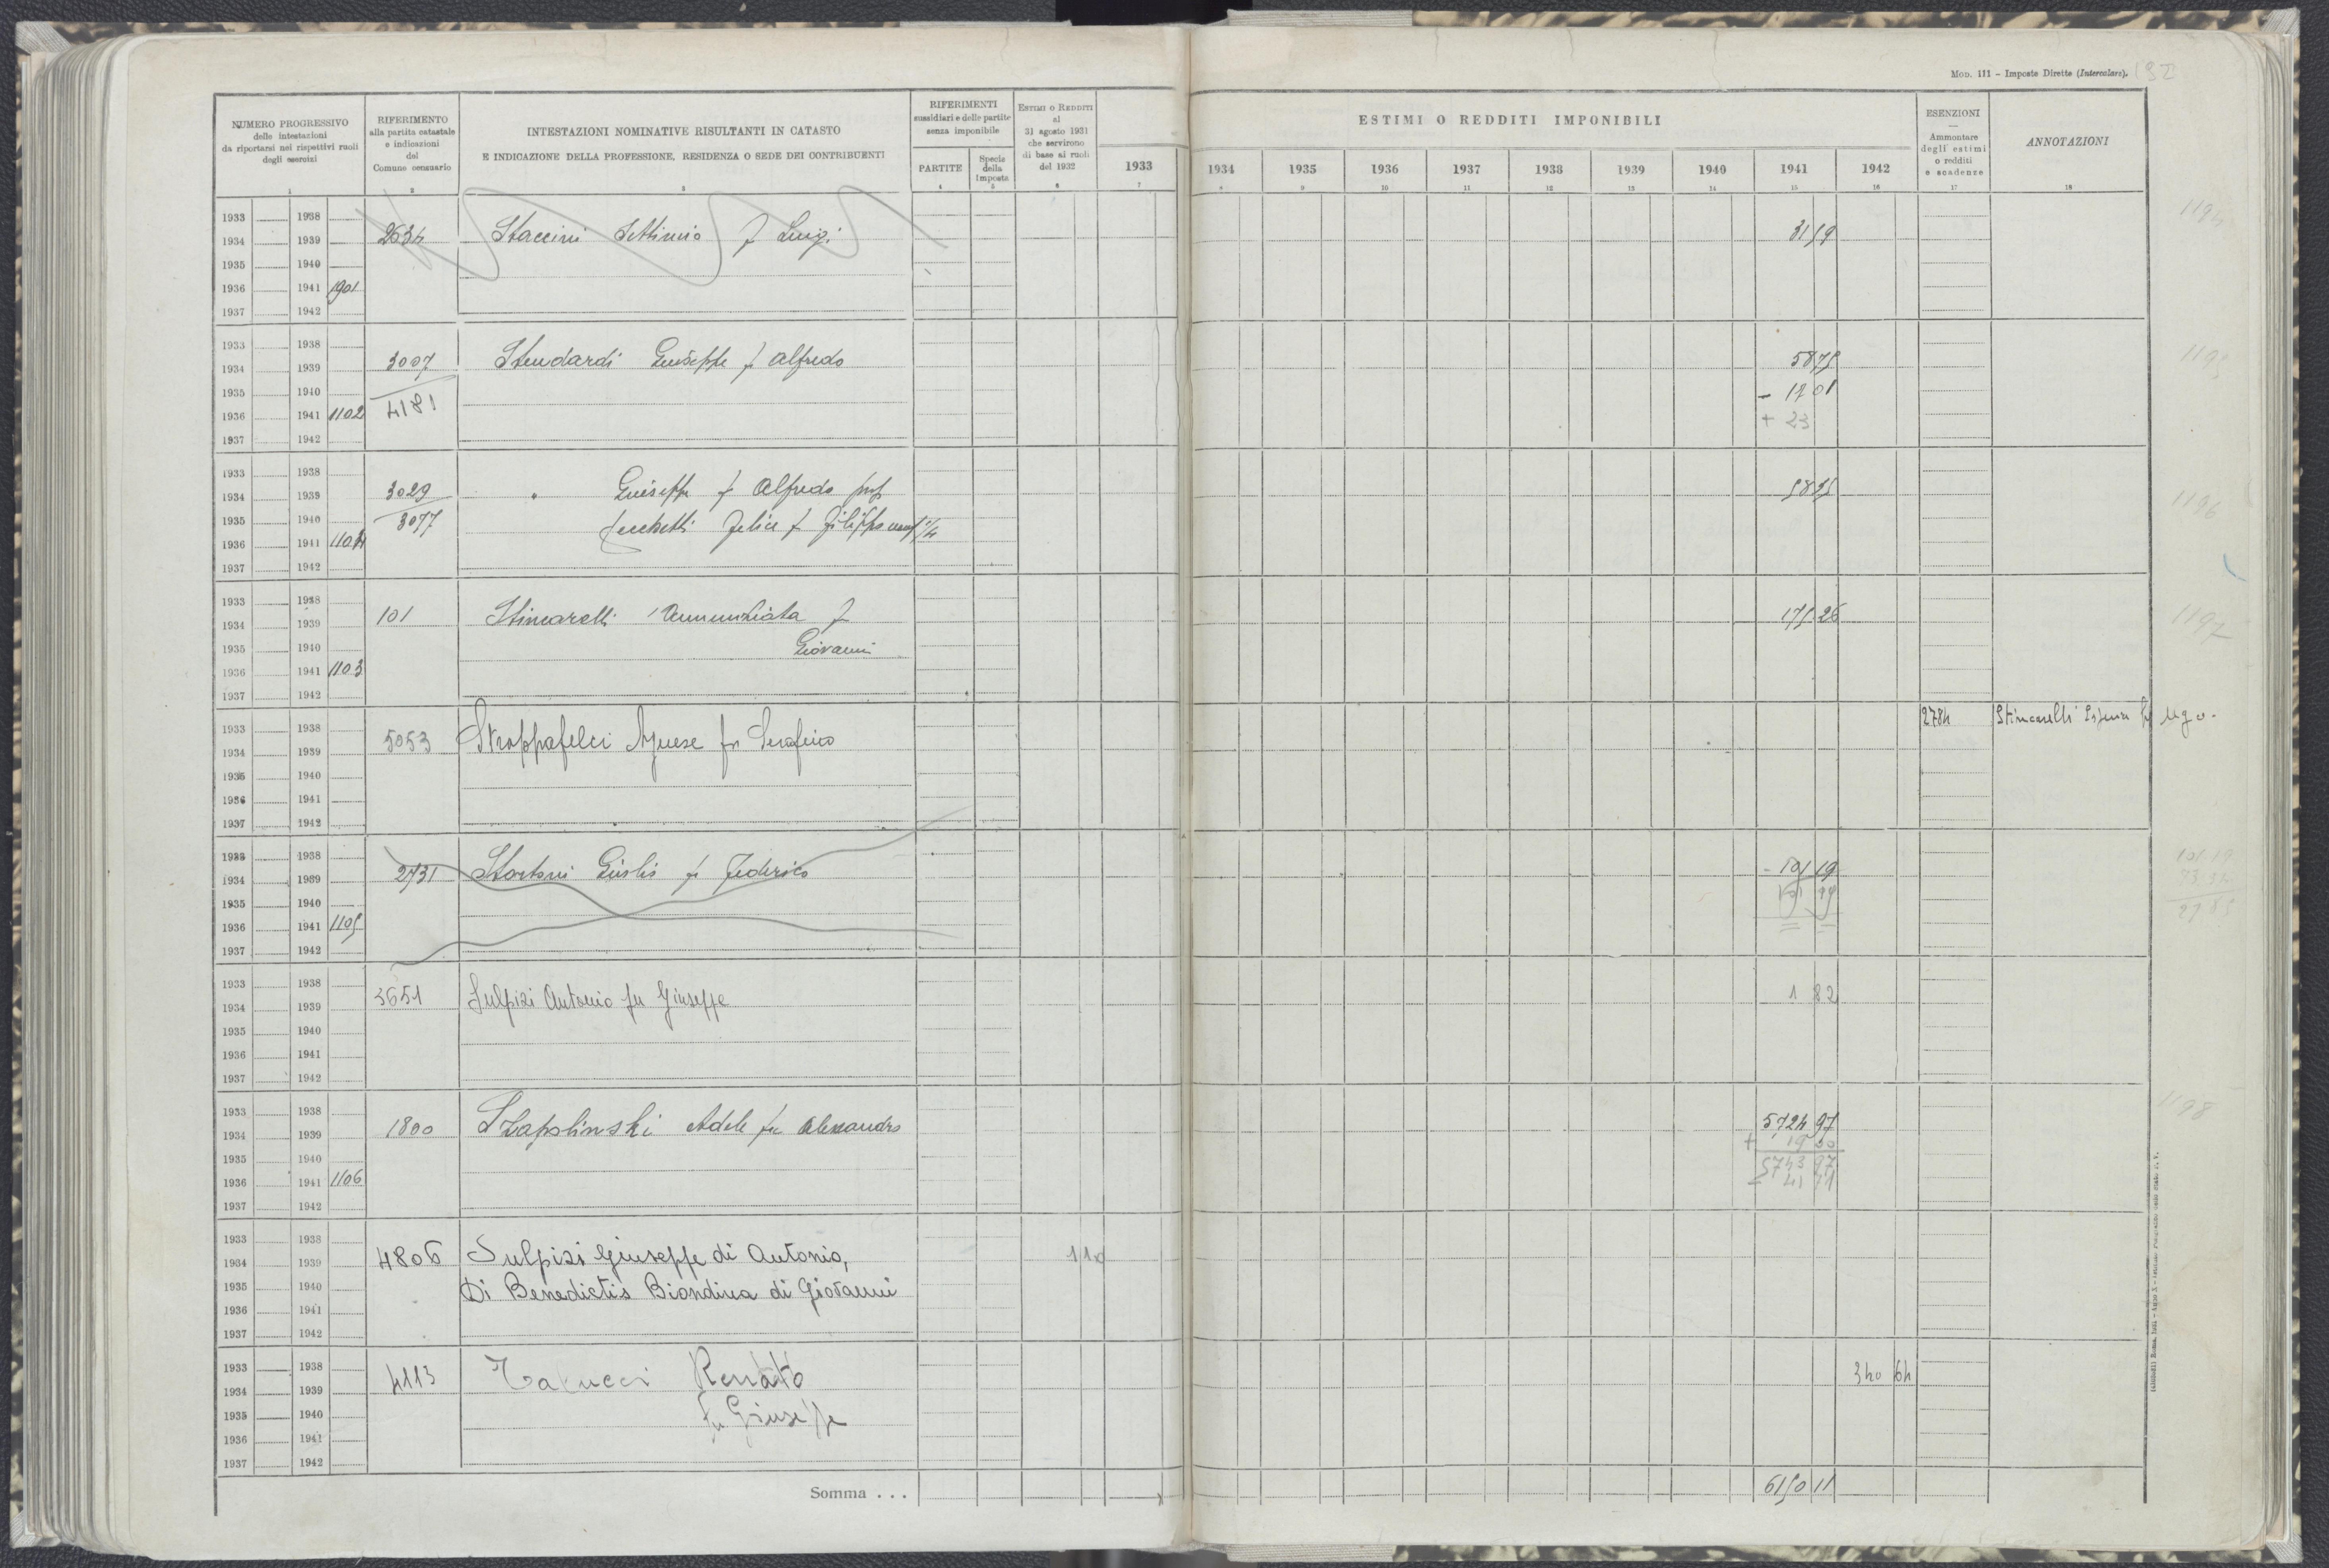 Mod. 111 - Imposte Dirette (Intercalare). 192
NUMERO PROGRESSIVO
delle intestazioni
da riportarsi nei rispettivi ruoli
degli esercizi
1
RIFERIMENTO
alla partita catastale
e indicazioni
del
Comune censuario
2
INTESTAZIONI NOMINATIVE RISULTANTI IN CATASTO
E INDICAZIONE DELLA PROFESSIONE, RESIDENZA O SEDE DEI CONTRIBUENTI
3
RIFERIMENTI
sussidiari e delle partite
senza imponibile
PARTITE
4
Specie
della
Imposta
5
Estimi o Redditi
al
31 agosto 1931
che servirono
di base ai ruoli
del 1932
6
1933
7
ESTIMI O REDDITI IMPONIBILI
1934 1935 1936 1937 1938 1939 1940 1941 1942
8 9 10 11 12 13 14 15 16
ESENZIONI
Ammontare
degli estimi
o redditi
e scadenze
17
ANNOTAZIONI
18
1933 1938
1934 1939 2634 Staccini Settimio f Luigi 31 59
1935 1940
1936 1941 1901
1937 1942
1933 1938
1934 1939 3007 Stendardi Giuseppe f Alfredo 58 75 1195
1935 1940 - 17 01
1936 1941 1102 4181 + 23
1937 1942
1933 1938
1934 1939 3029 " Giuseppe f Alfredo prop
1935 1940 3077 Felice f Filippo 1/4 1196
1936 1941 1104
1937 1942
1933 1938
1934 1939 101 Stincarelli Annunziata f 175 26 1197
1935 1940 Giovanni
1936 1941 1103
1937 1942
1933 1938 2784 Stincarelli fu Ugo.
1934 1939 5053 Stroppafelci Agnese fu Serafino
1935 1940
1936 1941
1937 1942
1933 1938
1934 1939 2731 Stortoni Giulio f Federico - 101 19
1935 1940
1936 1941 1105
1937 1942
1933 1938
1934 1939 3651 Sulpizi Antonio fu Giuseppe 1 82
1935 1940
1936 1941
1937 1942
1933 1938 1198
1934 1939 1800 Szapolinski Adele fu Alexandro 5724 97
1935 1940 + 19 00
1936 1941 1106 5743 97
1937 1942 - 41 71
1933 1938
1934 1939 4806 Sulpizi Giuseppe di Antonio, 110
1935 1940 Di Benedictis Biondina di Giovanni
1936 1941
1937 1942
1933 1938
1934 1939 4113 Renato 340 64
1935 1940 fu Giuseppe
1936 1941
1937 1942
Somma . . . 6150 11